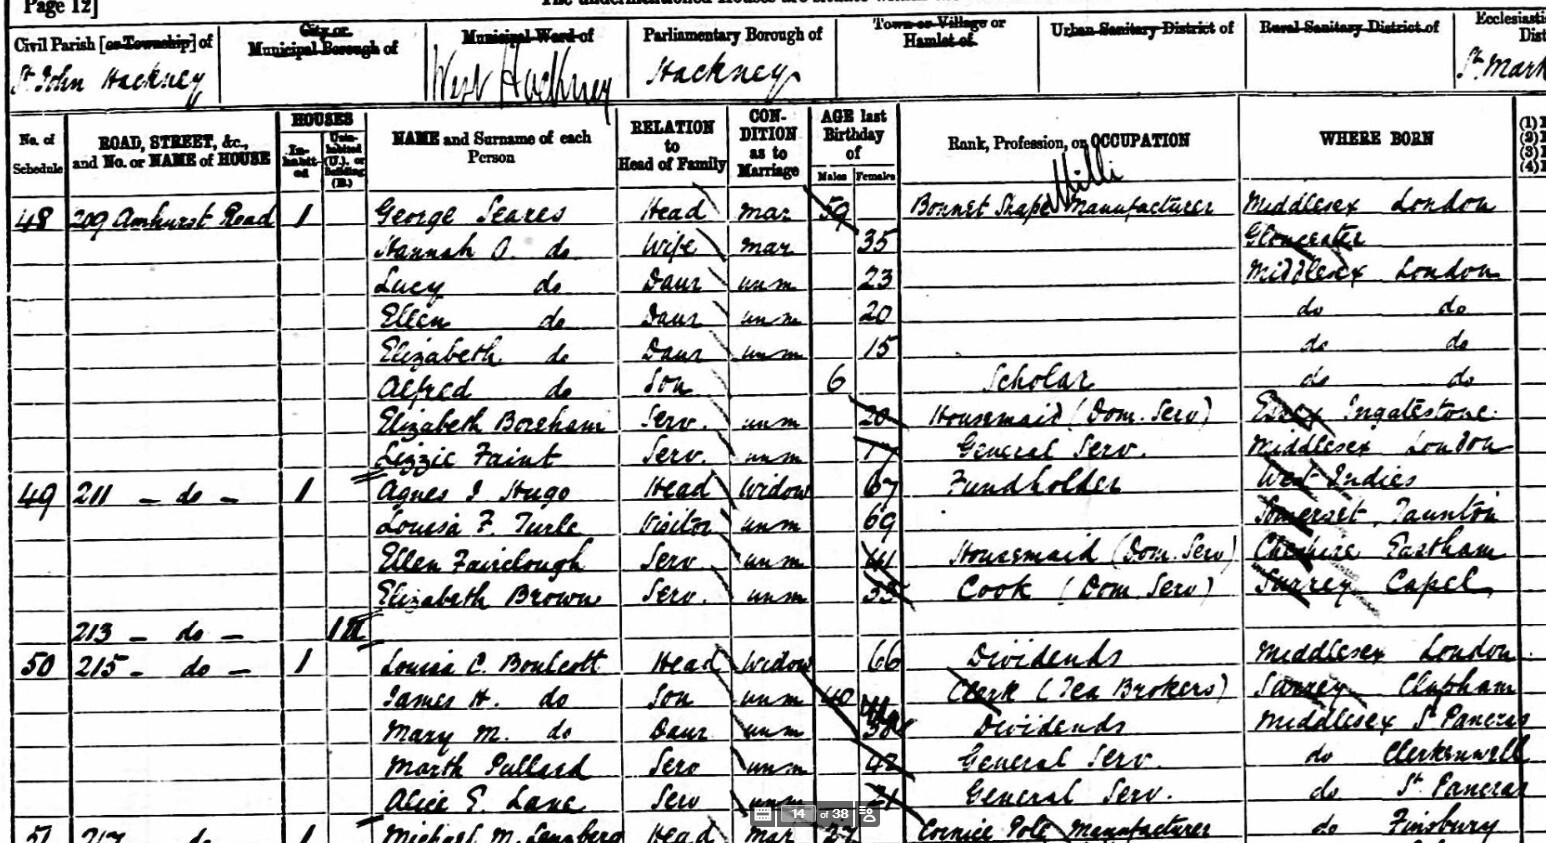 Page 12]
The undermentioned Houses are situate within the
Civil Parish [or Township] of
St John Hackney
City or Municipal Borough of
Municipal Ward of
West Hackney
Parliamentary Borough of
Hackney
Town or Village or Hamlet of
Urban Sanitary District of
Rural Sanitary District of
Ecclesiasti
Dist
St Mark
No. of Schedule
ROAD, STREET, &c., and No. or NAME of HOUSE
HOUSES
In-habit-ed
Unin-habited (U.), or Building (B.)
NAME and Surname of each Person
RELATION to Head of Family
CON-DITION as to Marriage
AGE last Birthday of
Males Females
Rank, Profession, or OCCUPATION
WHERE BORN
(1)
(2)
(3)
(4)
Milli
48 209 Amhurst Road 1 George Seares Head mar 59 Bonnet Shape Manufacturer Middlesex London
Hannah O. do Wife mar 35 Gloucester
Lucy do Daur unm 23 Middlesex London
Ellen do Daur unm 20 do do
Elizabeth do Daur unm 15 do do
Alfred do Son 6 Scholar do do
Elizabeth Boreham Serv. unm 20 Housemaid (Dom. Serv) Essex Ingatestone
Lizzie Faint Serv. unm 17 General Serv. Middlesex London
49 211 - do - 1 Agnes I Hugo Head Widow 67 Fundholder West Indies
Louisa F. Turle Visitor unm 69 Somerset, Taunton
Ellen Fairclough Serv unm 41 Housemaid (Dom. Serv) Cheshire Eastham
Elizabeth Brown Serv. unm 35 Cook (Dom Serv) Surrey Capel
213 - do - 1U
50 215 - do - 1 Louisa C. Boulcott Head Widow 66 Dividends Middlesex London
James H. do Son unm 40 Clerk (Tea Brokers) Surrey Clapham
Mary M. do Daur unm 38 Dividends Middlesex St Pancras
Marth Pullard Serv unm 42 General Serv. do Clerkenwell
Alice E. Lane Serv unm 21 General Serv. do St Pancras
14 of 38
51 217 do 1 Michael M. Head mar 27 Cornice Pole Manufacturer do Finsbury